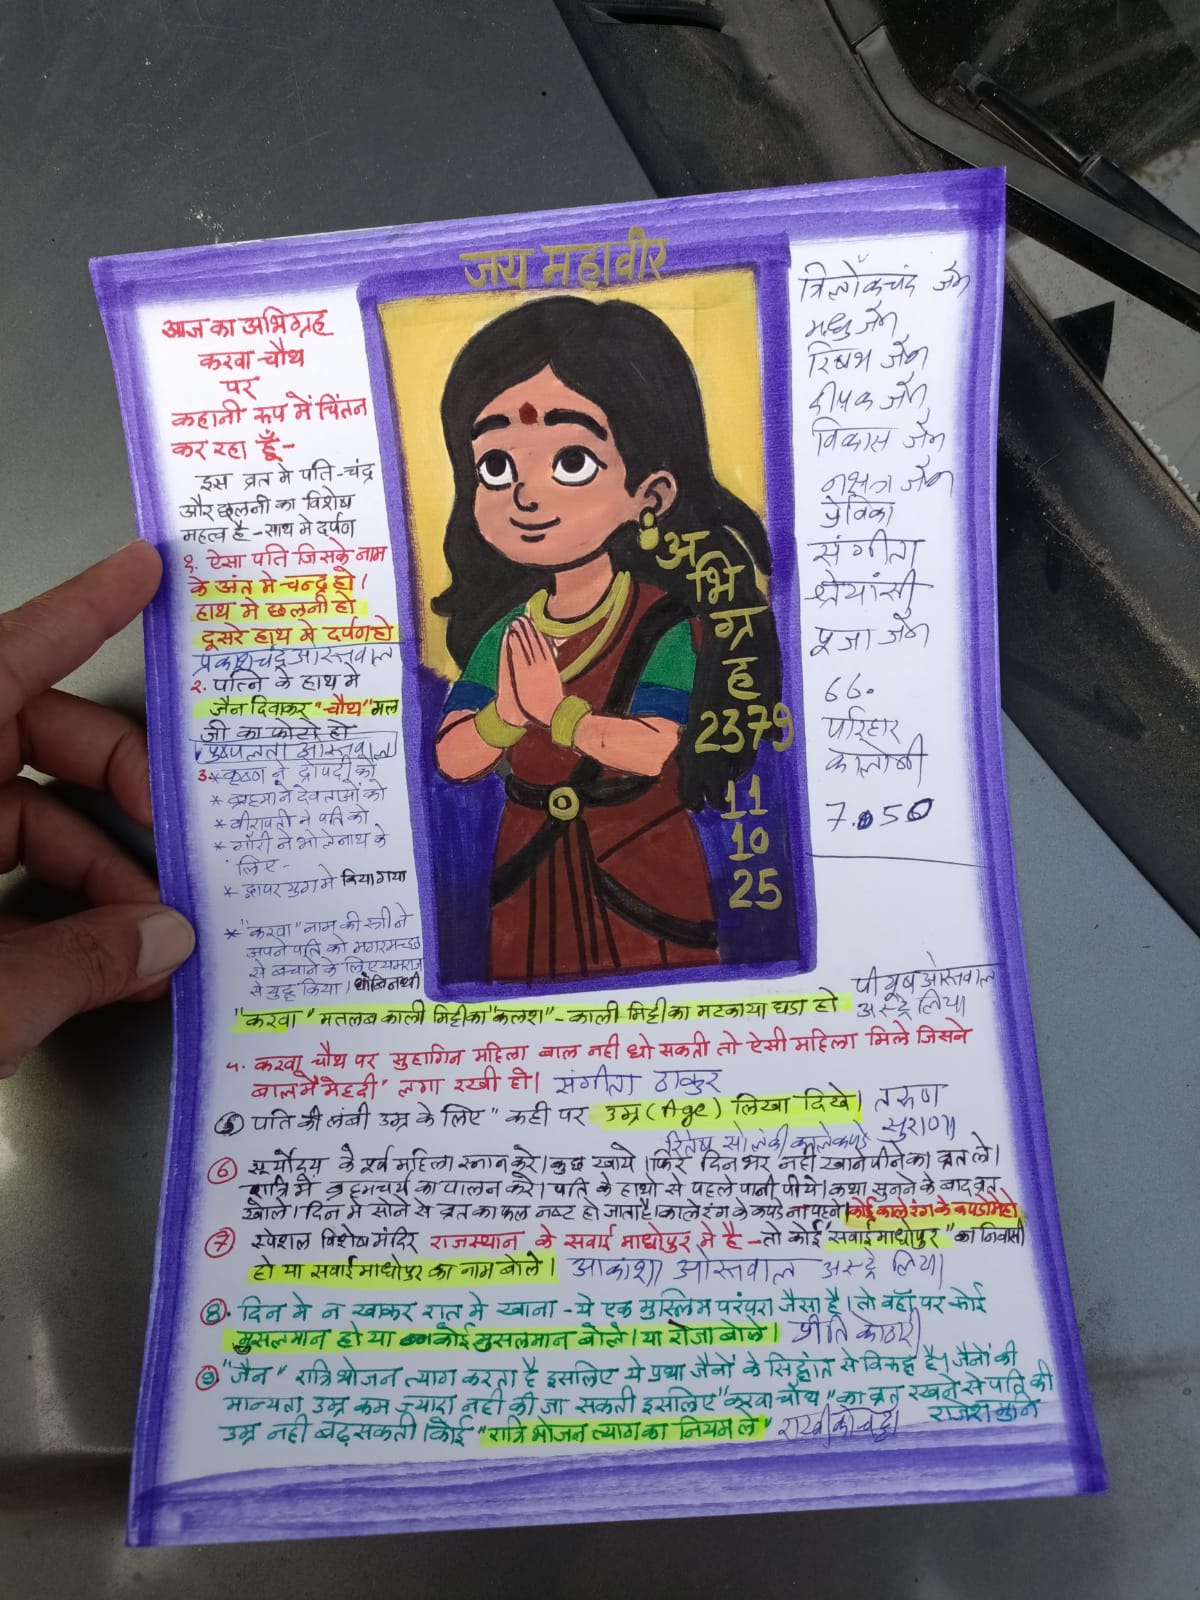 जय महावीर
आज का अभिग्रह
करवा चौथ
पर
कहानी रूप में चिंतन
कर रहा हूँ-
इस व्रत मे पति-चंद्र
और छलनी का विशेष
महत्व है-साथ मे दर्पण
१. ऐसा पति जिसके नाम
के अंत मे चन्द्र हो।
हाथ मे छलनी हो
दूसरे हाथ मे दर्पण हो
प्रकाशचंद्र ओस्तवाल
२. पत्नि के हाथ मे
जैन दिवाकर "चौथ" मल
जी का फोटो हो
ओस्तवाल
3.* कृष्ण ने द्रोपदी को
* ब्रह्मा ने देवताओं को
* वीरावती ने पति को
* गौरी ने भोलेनाथ के
लिए-
* द्वापर युग मे किया गया
* "करवा" नाम की स्त्री ने
अपने पति को मगरमच्छ
से बचाने के लिए यमराज
से युद्ध किया।
"करवा" मतलब काली मिट्टी का "कलश"-काली मिट्टी का मटका या घडा हो
पीयूष ओस्तवाल
अस्ट्रेलिया
५. करवा चौथ पर सुहागिन महिला बाल नही धो सकती तो ऐसी महिला मिले जिसने
बाल में मेहदी लगा रखी हो। संगीता ठाकुर
(5) पति की लंबी उम्र के लिए" कही पर उम्र (Age) लिखा दिखे। तरुण
सुराणा
रितेष सोलंकी काले कपडे
(6) सूर्योदय के पूर्व महिला स्नान करे। कुछ खाये। फिर दिनभर नही खाने पीने का व्रत ले।
रात्रि मे ब्रह्मचर्य का पालन करे। पति के हाथो से पहले पानी पीये। कथा सुनने के बाद व्रत
खोले। दिन मे सोने से व्रत का फल नष्ट हो जाता है। काले रंग के कपडे ना पहने। कोई काले रंग के कपडो मे हो
(7) स्पेशल विशेष मंदिर राजस्थान के सवाई माधोपुर मे है-तो कोई "सवाई माधोपुर" का निवासी
हो या सवाई माधोपुर का नाम बोले। आकांशा ओस्तवाल अस्ट्रेलिया
(8). दिन मे न खाकर रात मे खाना-ये एक मुस्लिम परंपरा जैसा है। तो वहाँ पर कोई
मुसलमान हो या कोई मुसलमान बोले। या रोजा बोले। प्रीति कोठारी
(9) "जैन" रात्रिभोजन त्याग करता है इसलिए ये प्रथा जैनो के सिद्धांत से विरूद्ध है। जैनो की
मान्यता उम्र कम ज्यादा नही की जा सकती इसलिए "करवा चौथ" का व्रत रखने से पति की
उम्र नही बढ़ सकती कोई "रात्रि भोजन त्याग का नियम ले"
अभिग्रह
2379
11
10
25
त्रिलोकचंद जैन
मधु जैन
रिषभ जैन
दीपक जैन
विकास जैन
जैन
प्रेविका
संगीता
श्रेयांसी
पूजा जैन
66.
परिहार
कालोनी
7.050